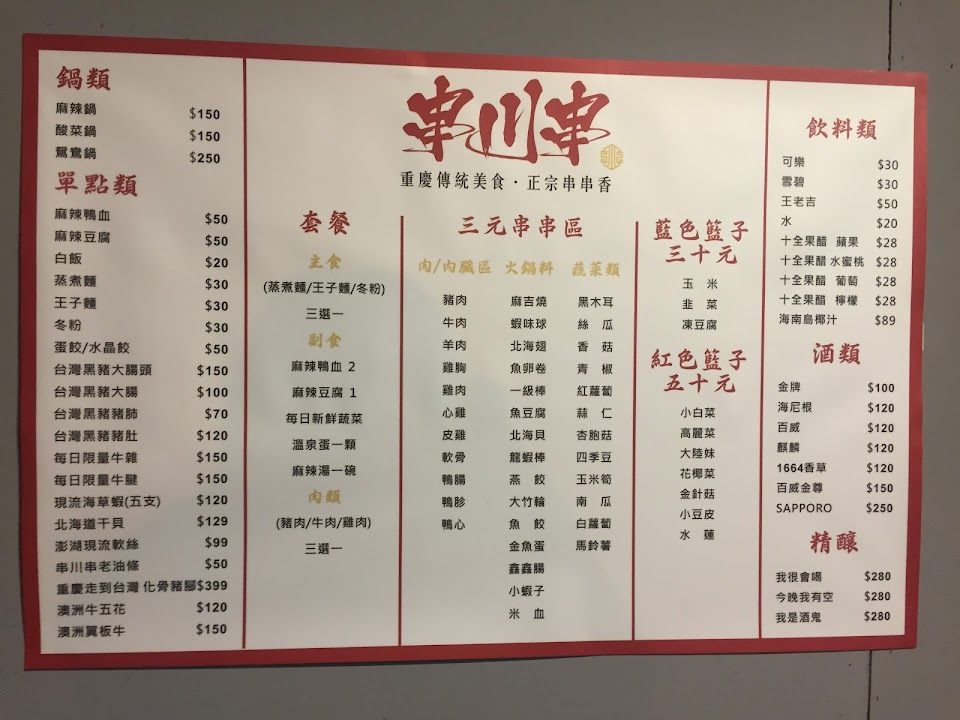 鍋類
麻辣鍋 $150
酸菜鍋 $150
鴛鴦鍋 $250
單點類
麻辣鴨血 $50
麻辣豆腐 $50
白飯 $20
蒸煮麵 $30
王子麵 $30
冬粉 $30
蛋餃/水晶餃 $50
台灣黑豬大腸頭 $150
台灣黑豬大腸 $100
台灣黑豬豬肺 $70
台灣黑豬豬肚 $120
每日限量牛雜 $150
每日限量牛腱 $150
現流海草蝦(五支) $120
北海道干貝 $129
澎湖現流軟絲 $99
串川串老油條 $50
重慶走到台灣 化骨豬腳 $399
澳洲牛五花 $120
澳洲翼板牛 $150
串川串
重慶傳統美食・正宗串串香
套餐
主食
(蒸煮麵/王子麵/冬粉)
三選一
副食
麻辣鴨血 2
麻辣豆腐 1
每日新鮮蔬菜
溫泉蛋一顆
麻辣湯一碗
肉類
(豬肉/牛肉/雞肉)
三選一
三元串串區
肉/內臟區
豬肉
牛肉
羊肉
雞胸
雞肉
心雞
皮雞
軟骨
鴨腸
鴨胗
鴨心
火鍋料
麻吉燒
蝦味球
北海翅
魚卵卷
一級棒
魚豆腐
北海貝
龍蝦棒
燕 餃
大竹輪
魚 餃
金魚蛋
鑫鑫腸
小蝦子
米 血
蔬菜類
黑木耳
絲 瓜
香 菇
青 椒
紅蘿蔔
蒜 仁
杏胞菇
四季豆
玉米筍
南 瓜
白蘿蔔
馬鈴薯
藍色籃子
三十元
玉 米
韭 菜
凍豆腐
紅色籃子
五十元
小白菜
高麗菜
大陸妹
花椰菜
金針菇
小豆皮
水 蓮
飲料類
可樂 $30
雪碧 $30
王老吉 $50
水 $20
十全果醋 蘋果 $28
十全果醋 水蜜桃 $28
十全果醋 葡萄 $28
十全果醋 檸檬 $28
海南島椰汁 $89
酒類
金牌 $100
海尼根 $120
百威 $120
麒麟 $120
1664香草 $120
百威金尊 $150
SAPPORO $250
精釀
我很會喝 $280
今晚我有空 $280
我是酒鬼 $280